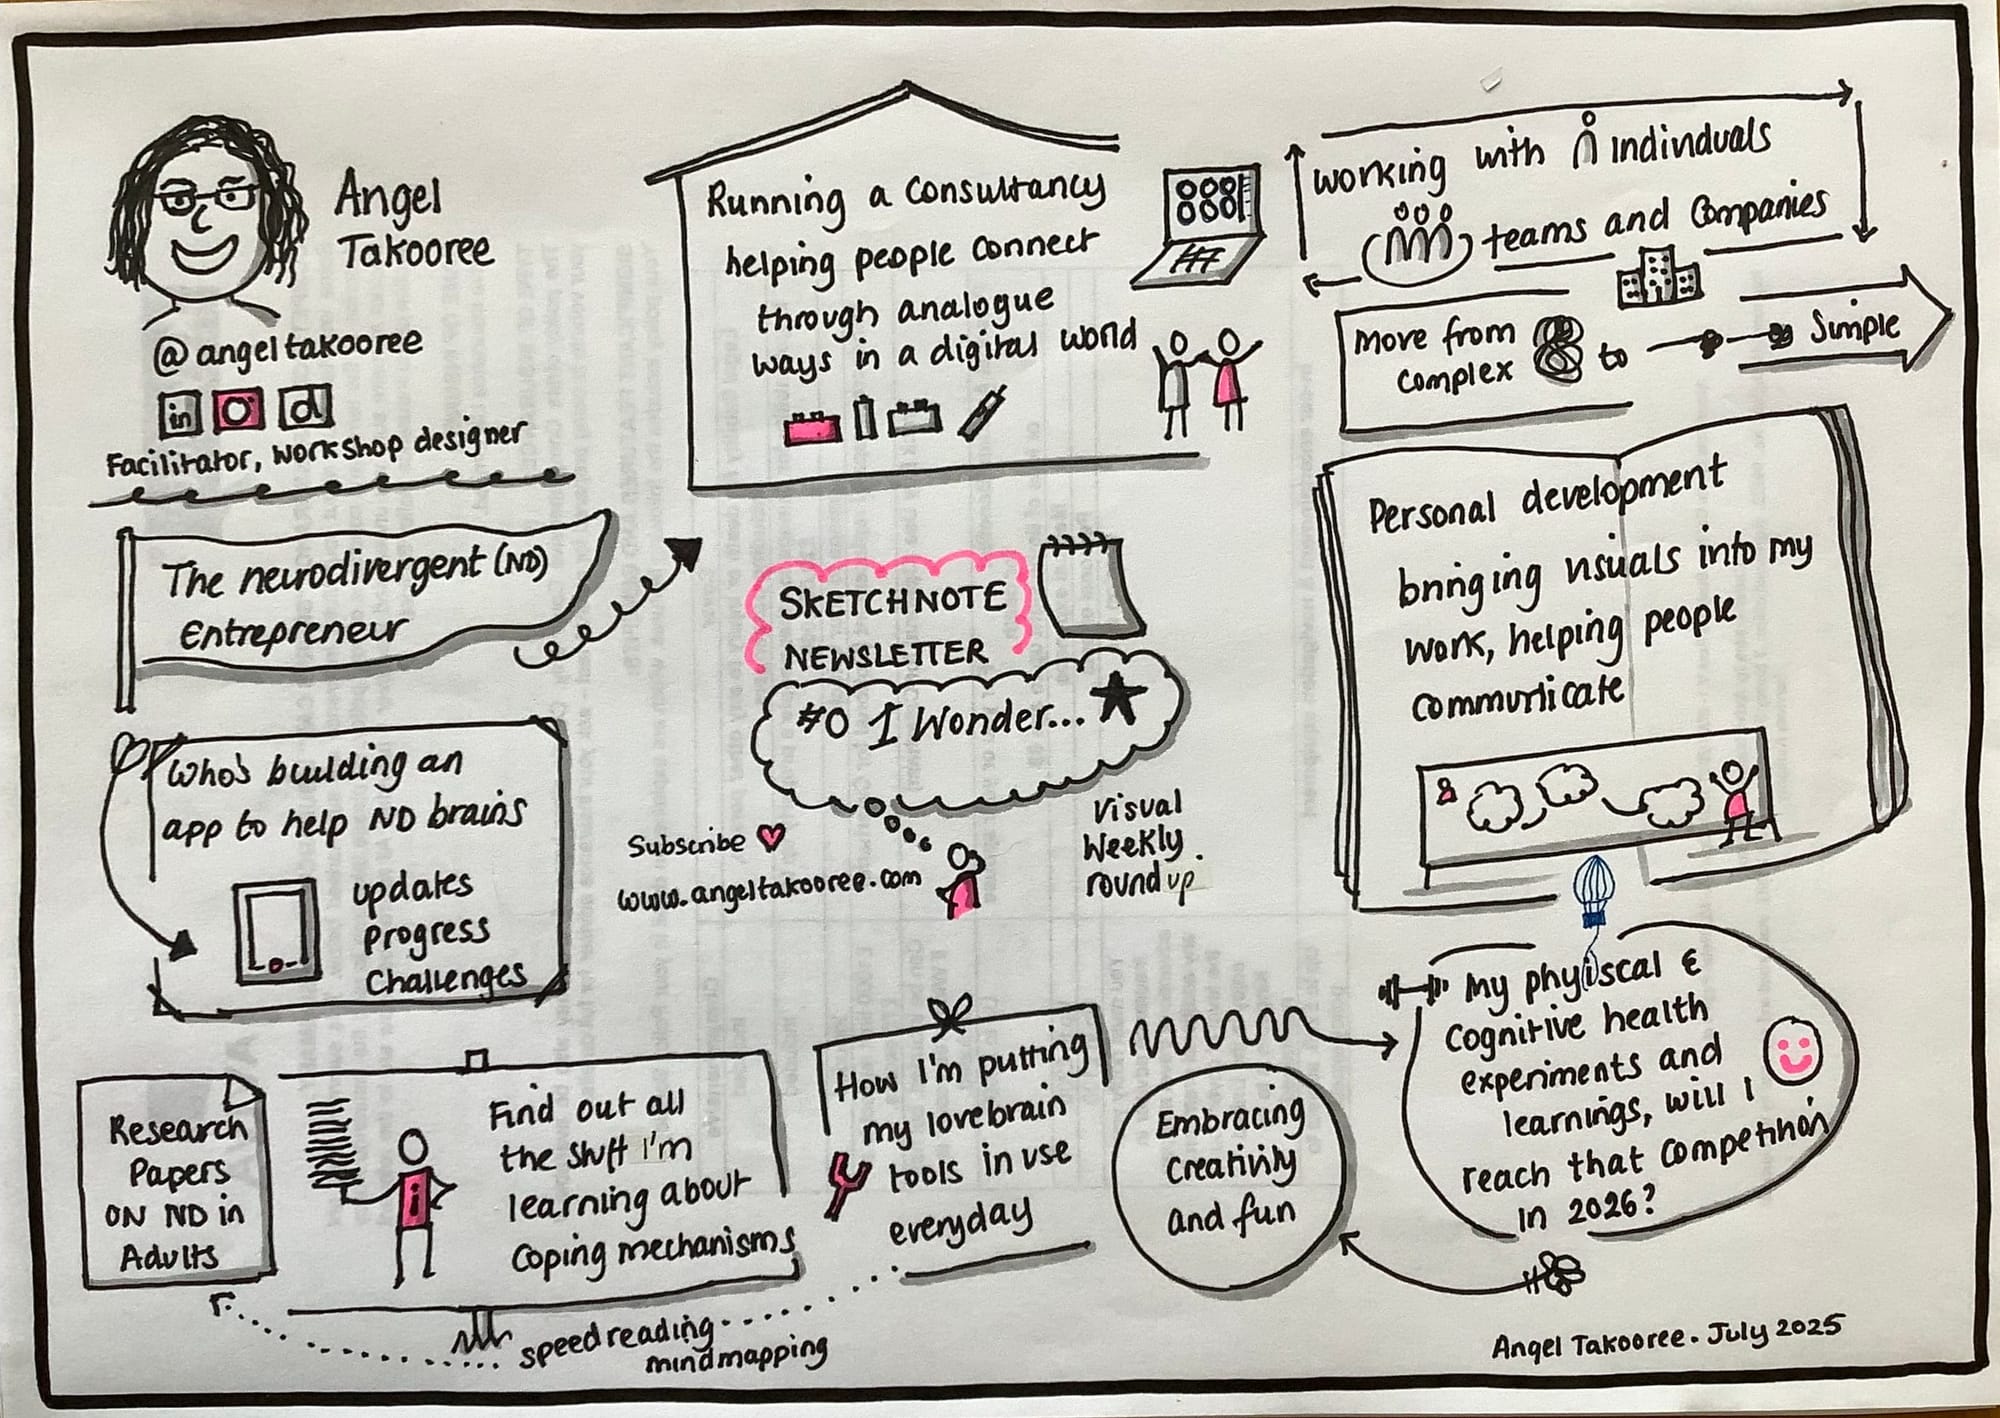 Angel
Takooree
@angeltakooree
in
d
Facilitator, workshop designer
Running a consultancy
helping people connect
through analogue
ways in a digital world
working with indinduals
teams and companies
More from
complex
to
Simple
The neurodivergent (ND)
Entrepreneur
SKETCHNOTE
NEWSLETTER
#0 I Wonder...
Subscribe
www.angeltakooree.com
Visual
Weekly
roundup.
Personal development
bringing visuals into my
work, helping people
communicate
Who's building an
app to help ND brains
updates
progress
Challenges
Research
Papers
ON ND in
Adults
Find out all
the stuff I'm
learning about
coping mechanisms
How I'm putting
my lovebrain
tools in use
everyday
speedreading
mindmapping
Embracing
creativity
and fun
My phyiscal &
cognitive health
experiments and
learnings, will I
reach that competition
in 2026?
Angel Takooree. July 2025